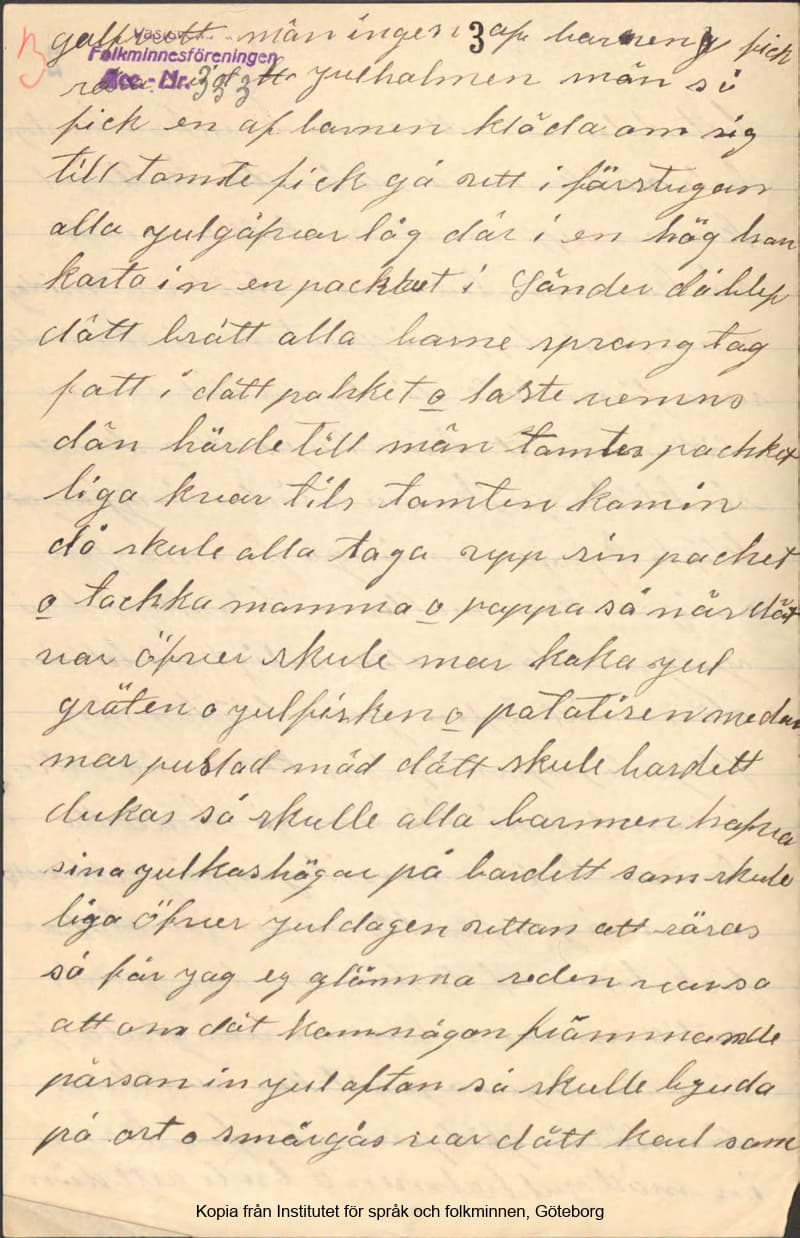 galfvett män ingen 3 af barnen fick
Folkminnesföreningen
Acc.-Nr.
röra vid julhalmen män så
fick en af barnen kläda om sig
till tomte fick gå utt i fårstugan
alla julgåfvor låg där i en hög han
kasta in en packket i Sänder då blef
dätt brått alla barne sprang tag
fatt i dätt pakket o läste vemns
dän hörde till män pachket
liga kvar tils tomten kom in
då skule alla taga upp sin packet
o tachka mamma o pappa så när dät
var öfver skule mor koka jul
gräten o julfisken o potatisen medan
mor pustad mäd dätt skule bordett
dukas så skulle alla barnnen hafva
sina julkashögar på bordett som skule
liga öfver juldagen uttan att röras
så får jag ej glömma seden var so
att om dät kom någon främmande
pärson in jul afton så skulle bjuda
på ost o smörgås var dätt karl som
Kopia från Institutet för språk och folkminnen, Göteborg